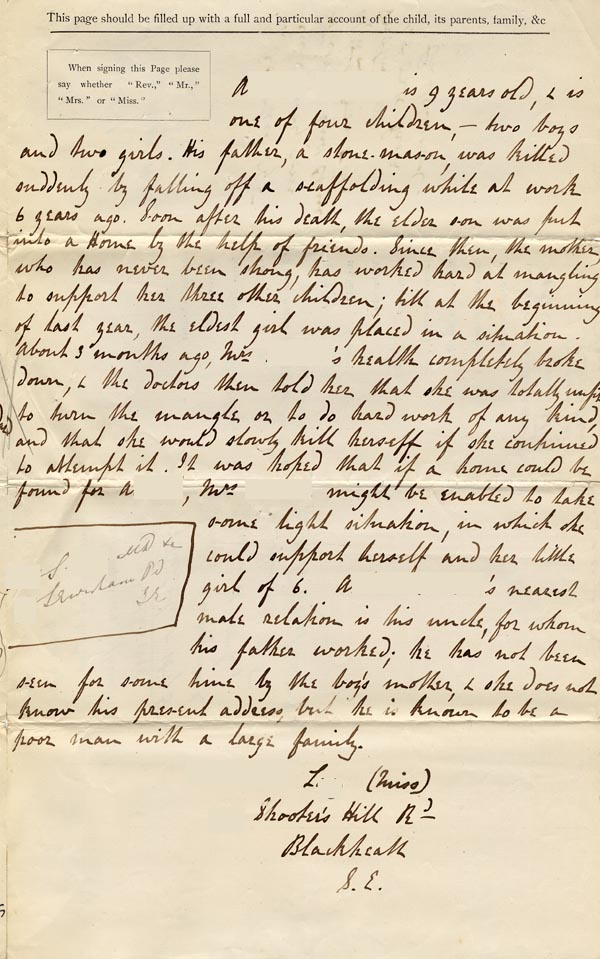 This page should be filled up with a full and particular account of the child, its parents, family, &c
When signing this Page please
say whether "Rev.," "Mr.,"
"Mrs." or "Miss."
A is 9 years old, & is
one of four children, – two boys
and two girls. His father, a stone-mason, was killed
suddenly by falling off a scaffolding while at work
6 years ago. Soon after his death, the elder son was put
into a Home by the help of friends. Since then, the mother,
who has never been strong, has worked hard at mangling
to support her three other children; till at the beginning
of last year, the eldest girl was placed in a situation.
About 3 months ago, Mrs. 's health completely broke
down, & the doctors then told her that she was totally unfit
to turn the mangle or to do hard work of any kind,
and that she would slowly kill herself if she continued
to attempt it. It was hoped that if a home could be
found for A , Mrs might be enabled to take
some light situation, in which she
could support herself and her little
girl of 6. A 's nearest
male relation is his uncle, for whom
his father worked; he has not been
seen for some time by the boy's mother, & she does not
know his present address, but he is known to be a
poor man with a large family.
L. (Miss)
Shooter's Hill Rd
Blackheath
S. E.
S.
Lewisham Rd
S.E.